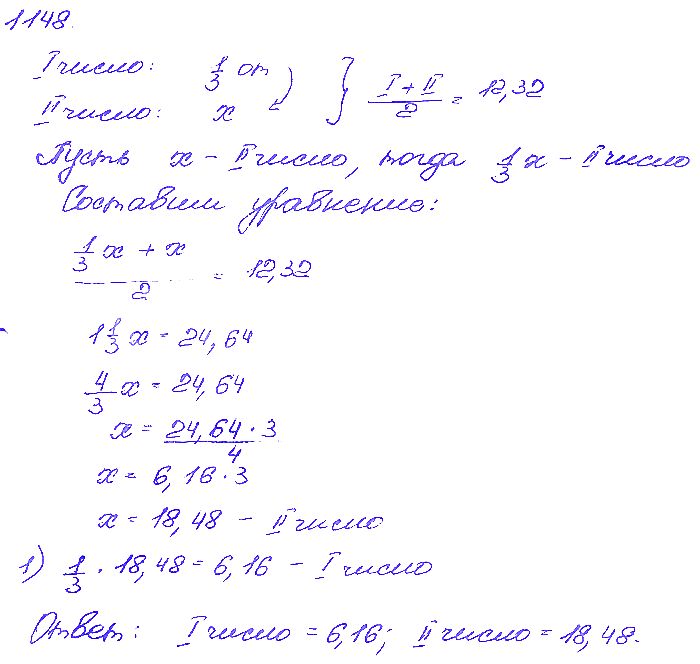 1148.
I число: 1/3 от
II число: x } (I + II)/2 = 12,32
Пусть x - II число, тогда 1/3 x - II число
Составим уравнение:
(1/3 x + x)/2 = 12,32
1 1/3 x = 24,64
4/3 x = 24,64
x = (24,64 · 3)/4
x = 6,16 · 3
x = 18,48 - II число
1) 1/3 · 18,48 = 6,16 - I число
Ответ: I число = 6,16; II число = 18,48.